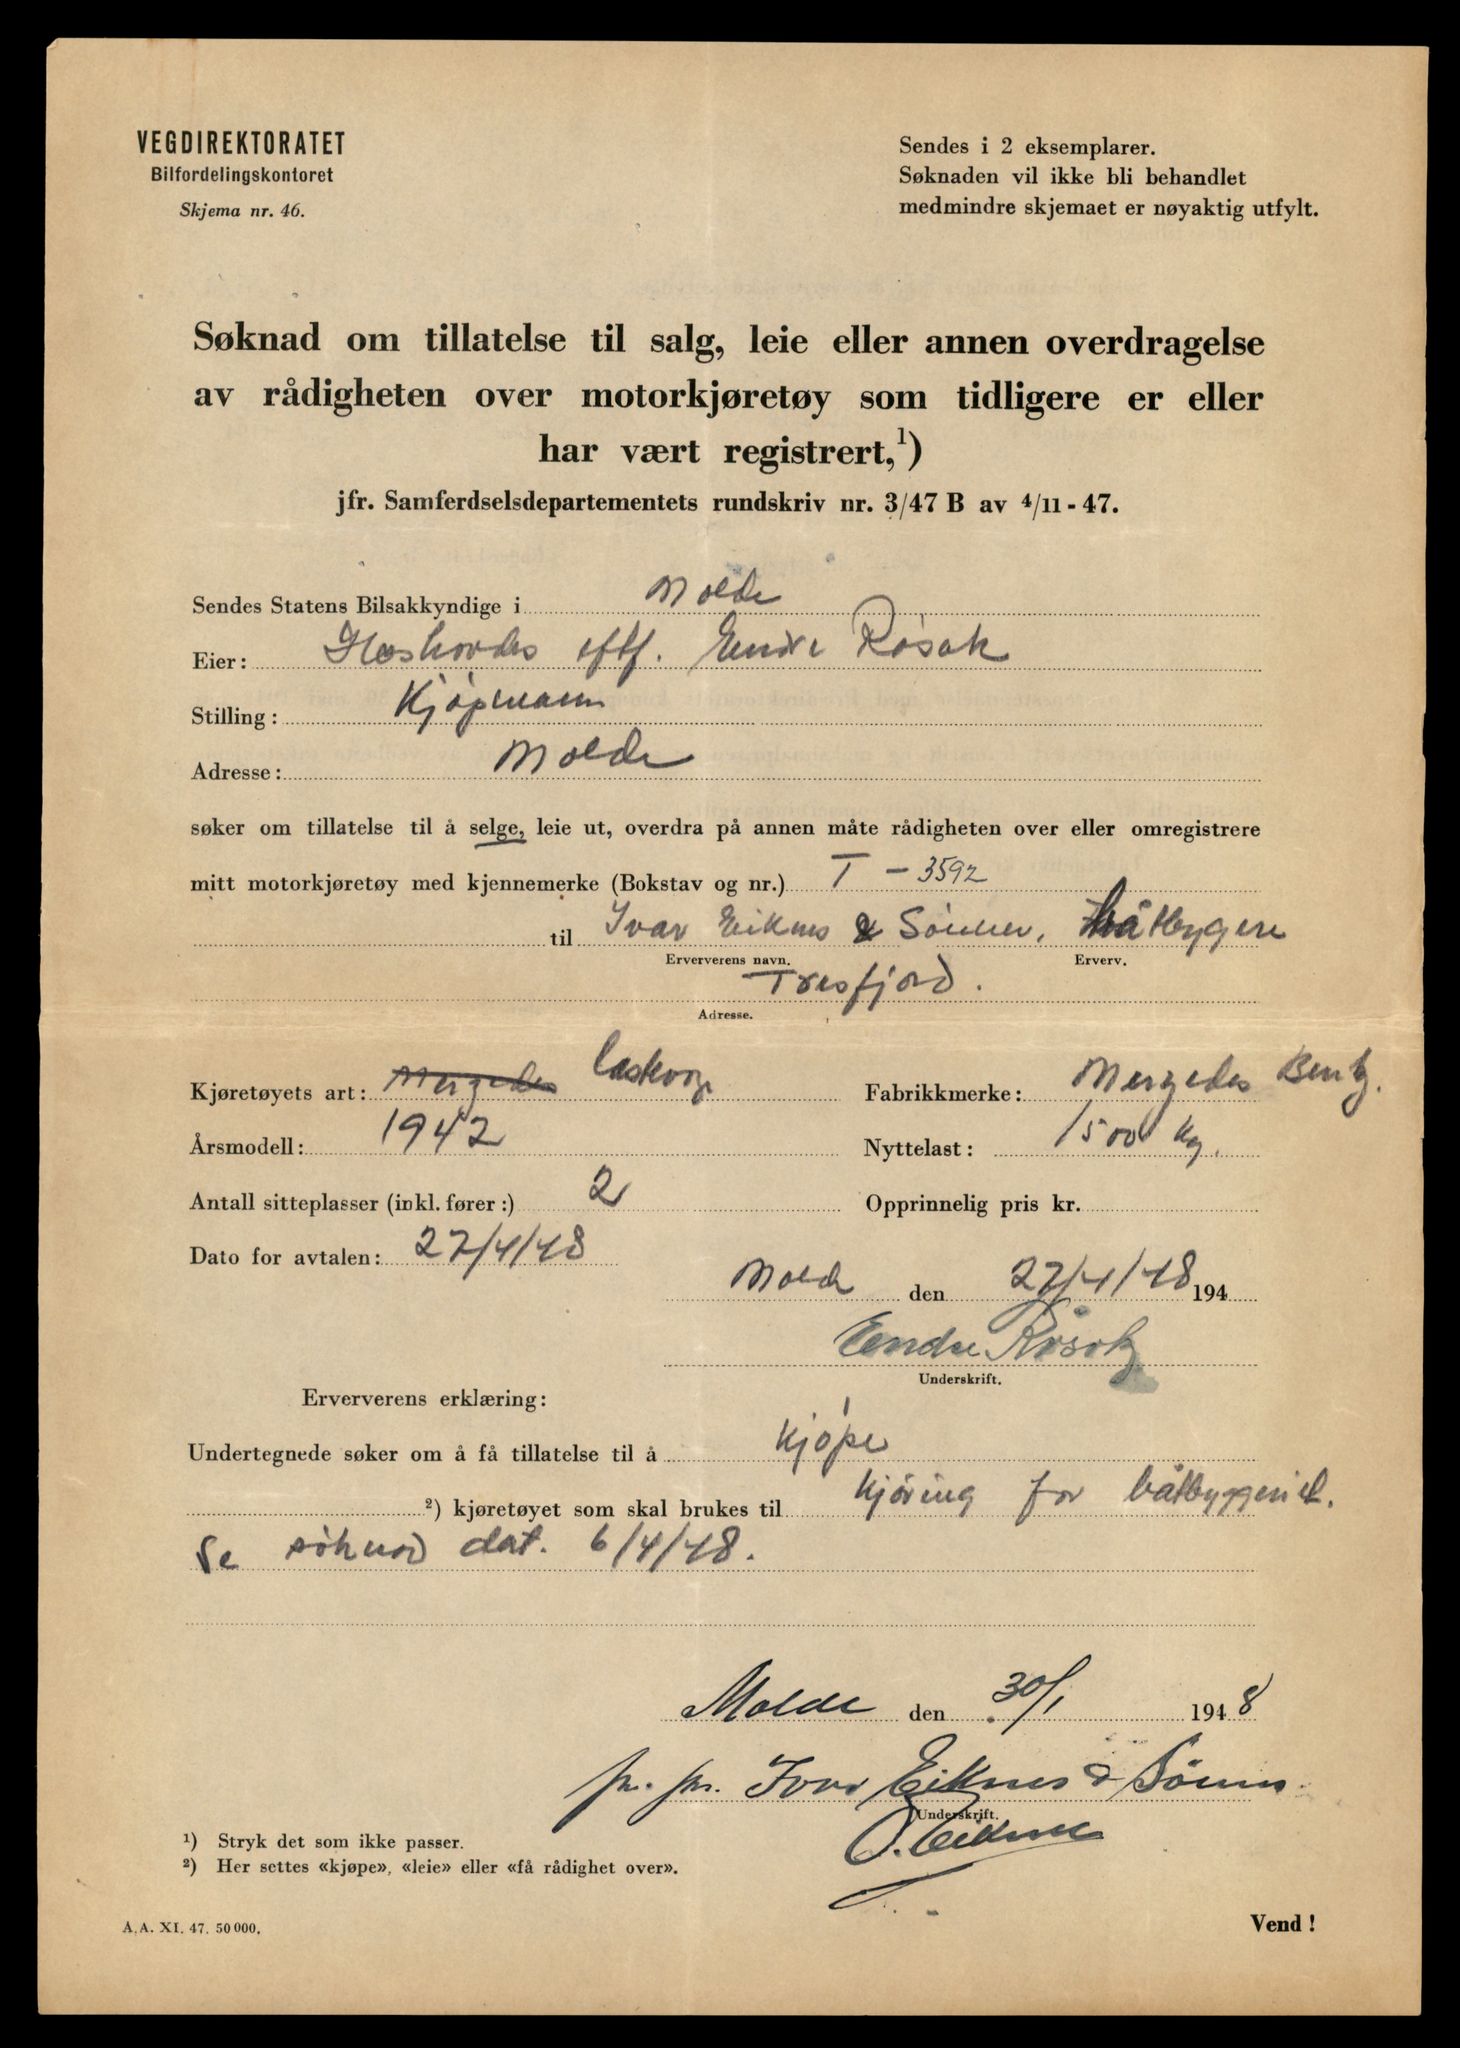 VEGDIREKTORATET
Bilfordelingskontoret
Skjema nr. 46.
Sendes i 2 eksemplarer.
Søknaden vil ikke bli behandlet
medmindre skjemaet er nøyaktig utfylt.
Søknad om tillatelse til salg, leie eller annen overdragelse
av rådigheten over motorkjøretøy som tidligere er eller
har vært registrert,¹)
jfr. Samferdselsdepartementets rundskriv nr. 3/47 B av 4/11 - 47.
Sendes Statens Bilsakkyndige i Molde
Eier: eftf. Endre Røsok
Stilling: Kjøpmann
Adresse: Molde
søker om tillatelse til å selge, leie ut, overdra på annen måte rådigheten over eller omregistrere
mitt motorkjøretøy med kjennemerke (Bokstav og nr.) T - 3592
til Ivar Eiknes & Sønner, båtbyggere
Erververens navn. Erverv.
Tresfjord.
Adresse.
Kjøretøyets art: Mergedes Lastevogn
Fabrikkmerke: Mergedes Bentz.
Årsmodell: 1942
Nyttelast: 1500 kg.
Antall sitteplasser (inkl. fører:) 2
Opprinnelig pris kr.
Dato for avtalen: 27/4/48
Molde den 27/4/48 194
Endre Røsok
Underskrift.
Erververens erklæring:
Undertegnede søker om å få tillatelse til å kjøpe
²) kjøretøyet som skal brukes til kjøring for båtbyggeriet.
Se søknad dat. 6/4/48.
Molde den 30/1 1948
pr. pr. Ivar Eiknes & Sønner
Underskrift.
O. Eiknes
¹) Stryk det som ikke passer.
²) Her settes «kjøpe», «leie» eller «få rådighet over».
A.A. XI. 47. 50 000.
Vend !